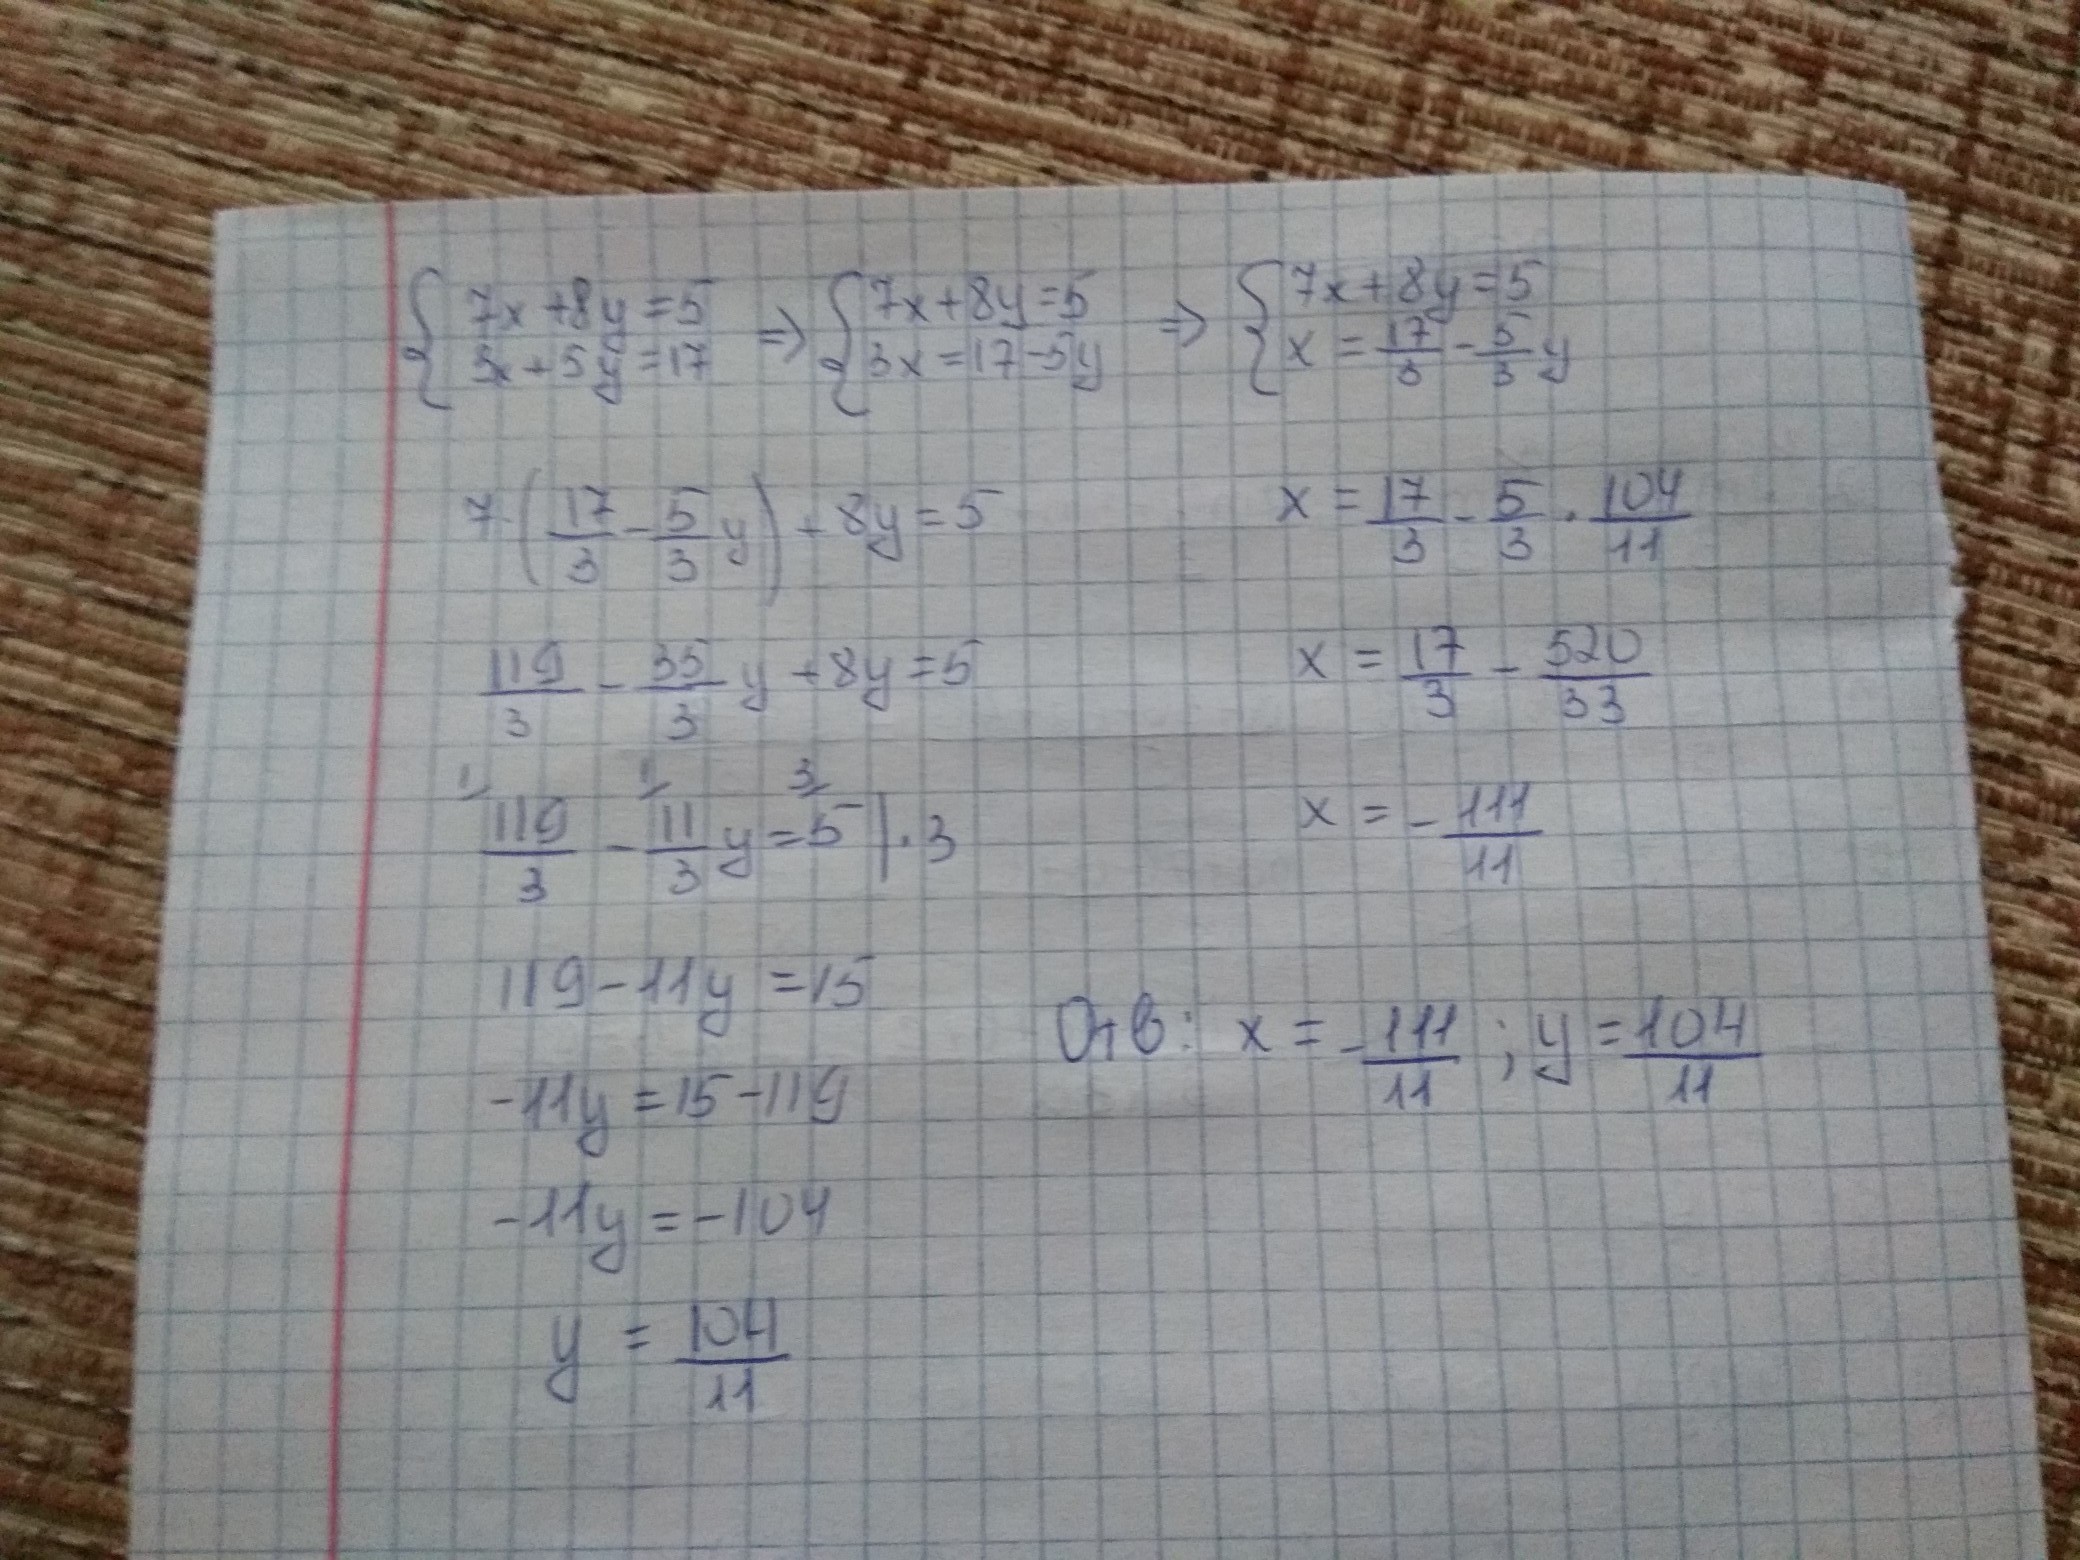 { 7x+8y=5 ⇒ { 7x+8y=5 ⇒ { 7x+8y=5
3x+5y=17 3x=17-5y x=17/3-5/3y
7·(17/3-5/3y)+8y=5
119/3-35/3y+8y=5
1/ 1/ 3/
119/3-11/3y=5 |·3
119-11y=15
-11y=15-119
-11y=-104
y=104/11
x=17/3-5/3·104/11
x=17/3-520/33
x=-111/11
Отв: x=-111/11; y=104/11